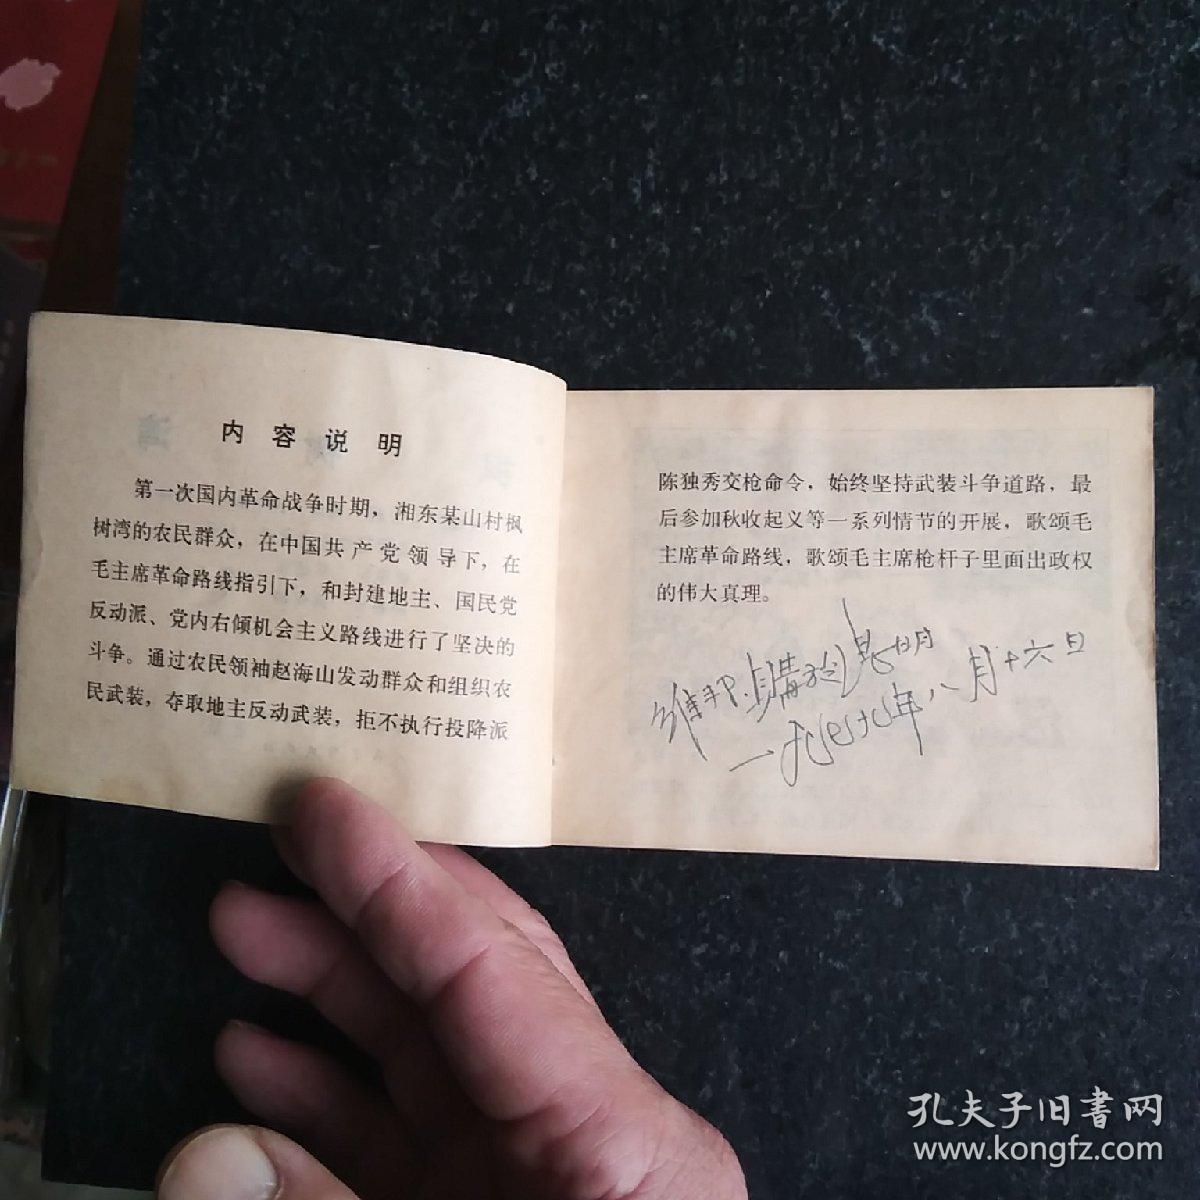 内容说明
第一次国内革命战争时期，湘东某山村枫
树湾的农民群众，在中国共产党领导下，在
毛主席革命路线指引下，和封建地主、国民党
反动派、党内右倾机会主义路线进行了坚决的
斗争。通过农民领袖赵海山发动群众和组织农
民武装，夺取地主反动武装，拒不执行投降派
陈独秀交枪命令，始终坚持武装斗争道路，最
后参加秋收起义等一系列情节的开展，歌颂毛
主席革命路线，歌颂毛主席枪杆子里面出政权
的伟大真理。
購于昆明
年八月十六日
孔夫子旧書网
www.kongfz.com